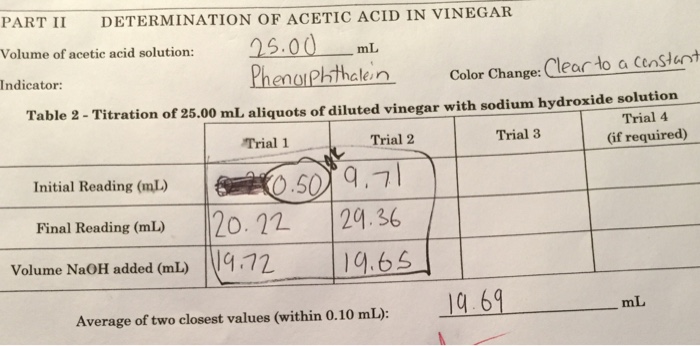 PART II DETERMINATION OF ACETIC ACID IN VINEGAR
Volume of acetic acid solution: 25.00 mL
Indicator: Phenolphthalein Color Change: Clear to a constant
Table 2 - Titration of 25.00 mL aliquots of diluted vinegar with sodium hydroxide solution
Trial 1 Trial 2 Trial 3 Trial 4 (if required)
Initial Reading (mL) 0.50 9.71
Final Reading (mL) 20.22 29.36
Volume NaOH added (mL) 19.72 19.65
Average of two closest values (within 0.10 mL): 19.69 mL